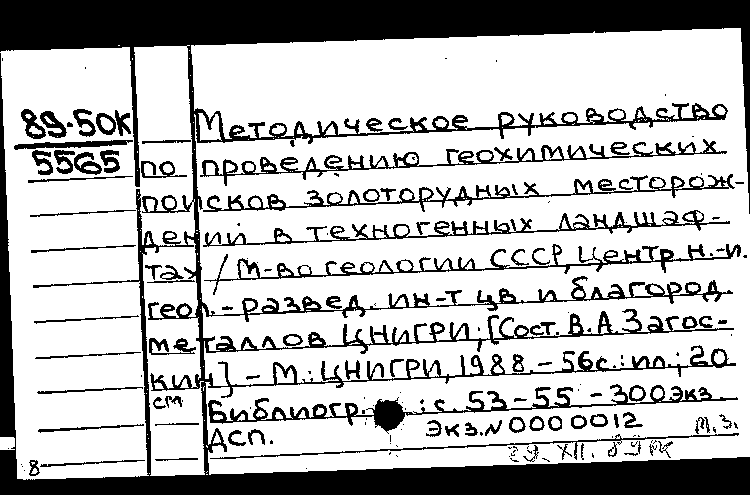 89-50К
5565
Методическое руководство
по проведению геохимических
поисков золоторудных месторож-
дений в техногенных ландшаф-
тах / М-во геологии СССР, Центр. н.-и.
геол.-развед. ин-т цв. и благород.
металлов ЦНИГРИ; [Сост. В.А. Загос-
кин] - М.: ЦНИГРИ, 1988. - 56с.: ил.; 20
см
Библиогр. : с. 53-55 - 300экз.
Экз. N 0000012
ДСП.
М.З.
29.XII.89
8-